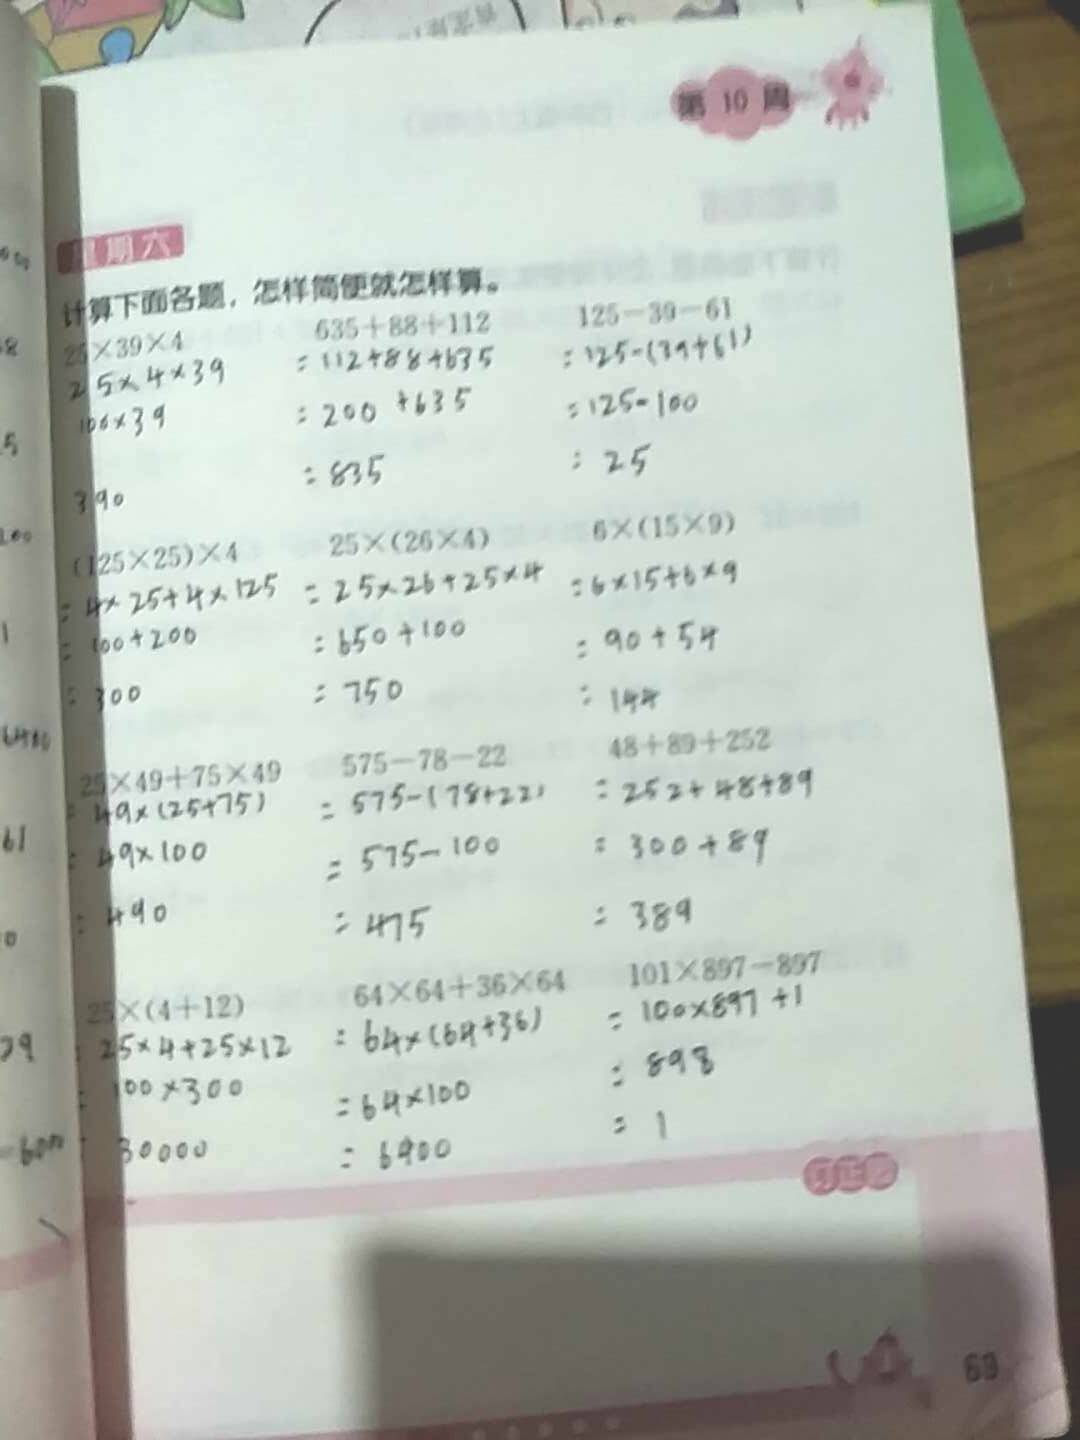 第 10 周
星期六
计算下面各题，怎样简便就怎样算。
25×39×4
25×4×39
100×39
390
635+88+112
=112+88+635
=200+635
=835
125-39-61
=125-(39+61)
=125-100
=25
(125×25)×4
=4×25+4×125
=100+200
=300
25×(26×4)
=25×26+25×4
=650+100
=750
6×(15×9)
=6×15+6×9
=90+54
=144
25×49+75×49
=49×(25+75)
=49×100
=490
575-78-22
=575-(78+22)
=575-100
=475
48+89+252
=252+48+89
=300+89
=389
25×(4+12)
=25×4+25×12
=100×300
30000
64×64+36×64
=64×(64+36)
=64×100
=6400
101×897-897
=100×897+1
=898
=1
订正
69